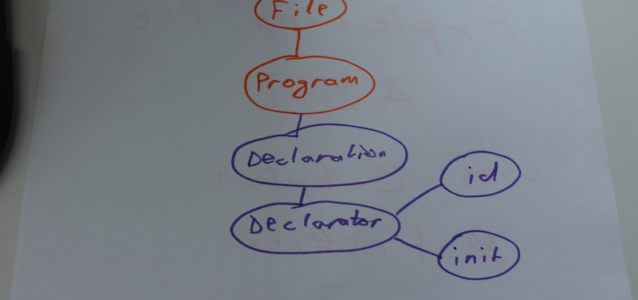 File
Program
Declaration
id
Declarator
init